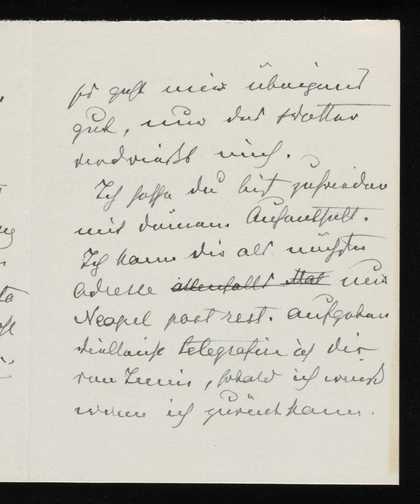 es geht mir übrigens
gut, nur das Wetter
verdrießt mich.
Ich hoffe du bist zufrieden
mit deinem Aufenthalt.
Ich kann dir als nächste
Adresse allenfalls nur
Neapel post rest. aufgeben
vielleicht telegrafire ich dir
von Tunis, sobald ich weiß
wann ich zurück kann.